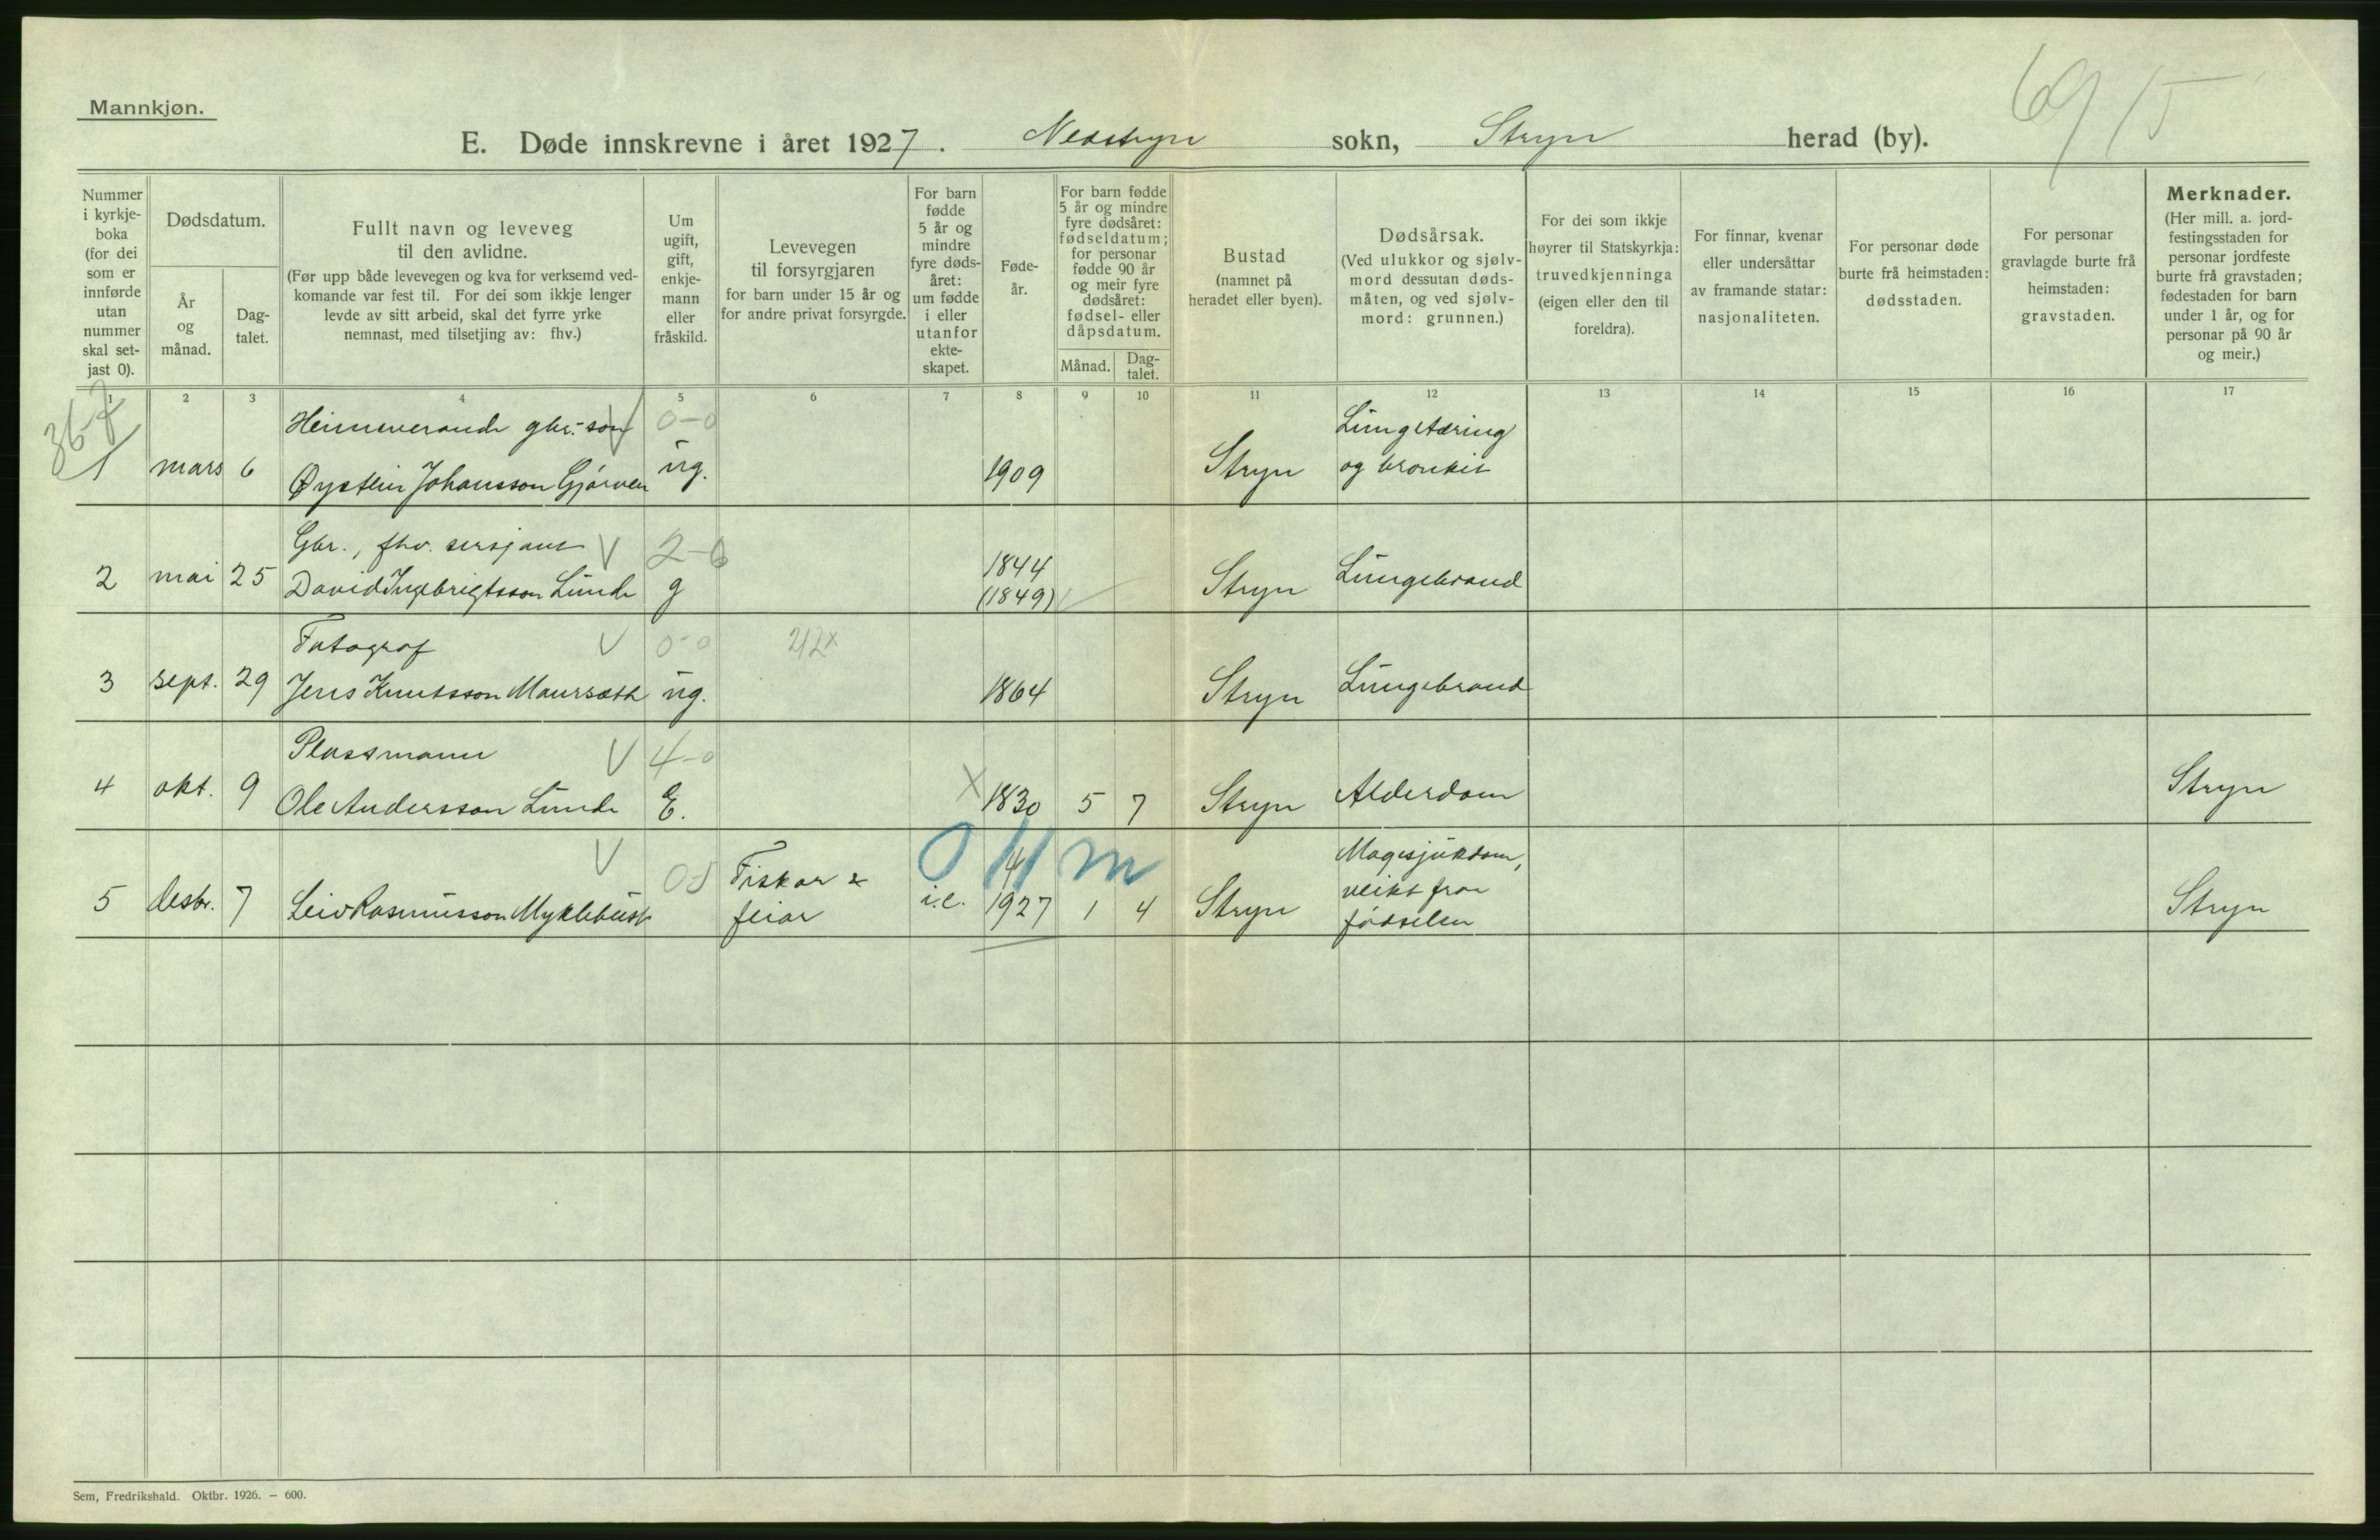 Mannkjøn.
E. Døde innskrevne i året 1927. Nedstryn sokn, Stryn herad (by).
69 15
Nummer i kyrkjeboka (for dei som er innførde utan nummer skal setjast 0).
Dødsdatum.
År og månad.
Dagtalet.
Fullt navn og leveveg til den avlidne.
(Før upp både levevegen og kva for verksemd vedkomande var fest til. For dei som ikkje lenger levde av sitt arbeid, skal det fyrre yrke nemnast, med tilsetjing av: fhv.)
Um ugift, gift, enkjemann eller fråskild.
Levevegen til forsyrgjaren for barn under 15 år og for andre privat forsyrgde.
For barn fødde 5 år og mindre fyre dødsåret: um fødde i eller utanfor ekteskapet.
Fødeår.
For barn fødde 5 år og mindre fyre dødsåret: fødseldatum; for personar fødde 90 år og meir fyre dødsåret: fødsel- eller dåpsdatum.
Månad.
Dagtalet.
Bustad (namnet på heradet eller byen).
Dødsårsak.
(Ved ulukkor og sjølvmord dessutan dødsmåten, og ved sjølvmord: grunnen.)
For dei som ikkje høyrer til Statskyrkja: truvedkjenninga (eigen eller den til foreldra).
For finnar, kvenar eller undersåttar av framande statar: nasjonaliteten.
For personar døde burte frå heimstaden: dødsstaden.
For personar gravlagde burte frå heimstaden: gravstaden.
Merknader.
(Her mill. a. jordfestingsstaden for personar jordfeste burte frå gravstaden; fødestaden for barn under 1 år, og for personar på 90 år og meir.)
1 2 3 4 5 6 7 8 9 10 11 12 13 14 15 16 17
367
Heimeverande gbr.-son V 0-0 Lungetæring
1 mars 6 Øystein Johansson Gjørven ug. 1909 Stryn og bronkit
Gbr., fhv. sersjant V 2-0 1844
2 mai 25 David Ingebrigtsson Lunde g (1849) Stryn Lungebrand
Fotograf V 0-0 212x
3 sept. 29 Jens Knutsson Maursæth ug. 1864 Stryn Lungebrand
Plassmann V 4-0
4 okt. 9 Ole Andersson Lunde E. X 1830 5 7 Stryn Alderdom Stryn
V 0 11 m Magesjukdom,
Fiskar & 4 veikt fraa
5 desbr. 7 Leiv Rasmusson Myklebust feiar i.e. 1927 1 4 Stryn fødselen Stryn
Sem, Fredrikshald. Oktbr. 1926. — 600.